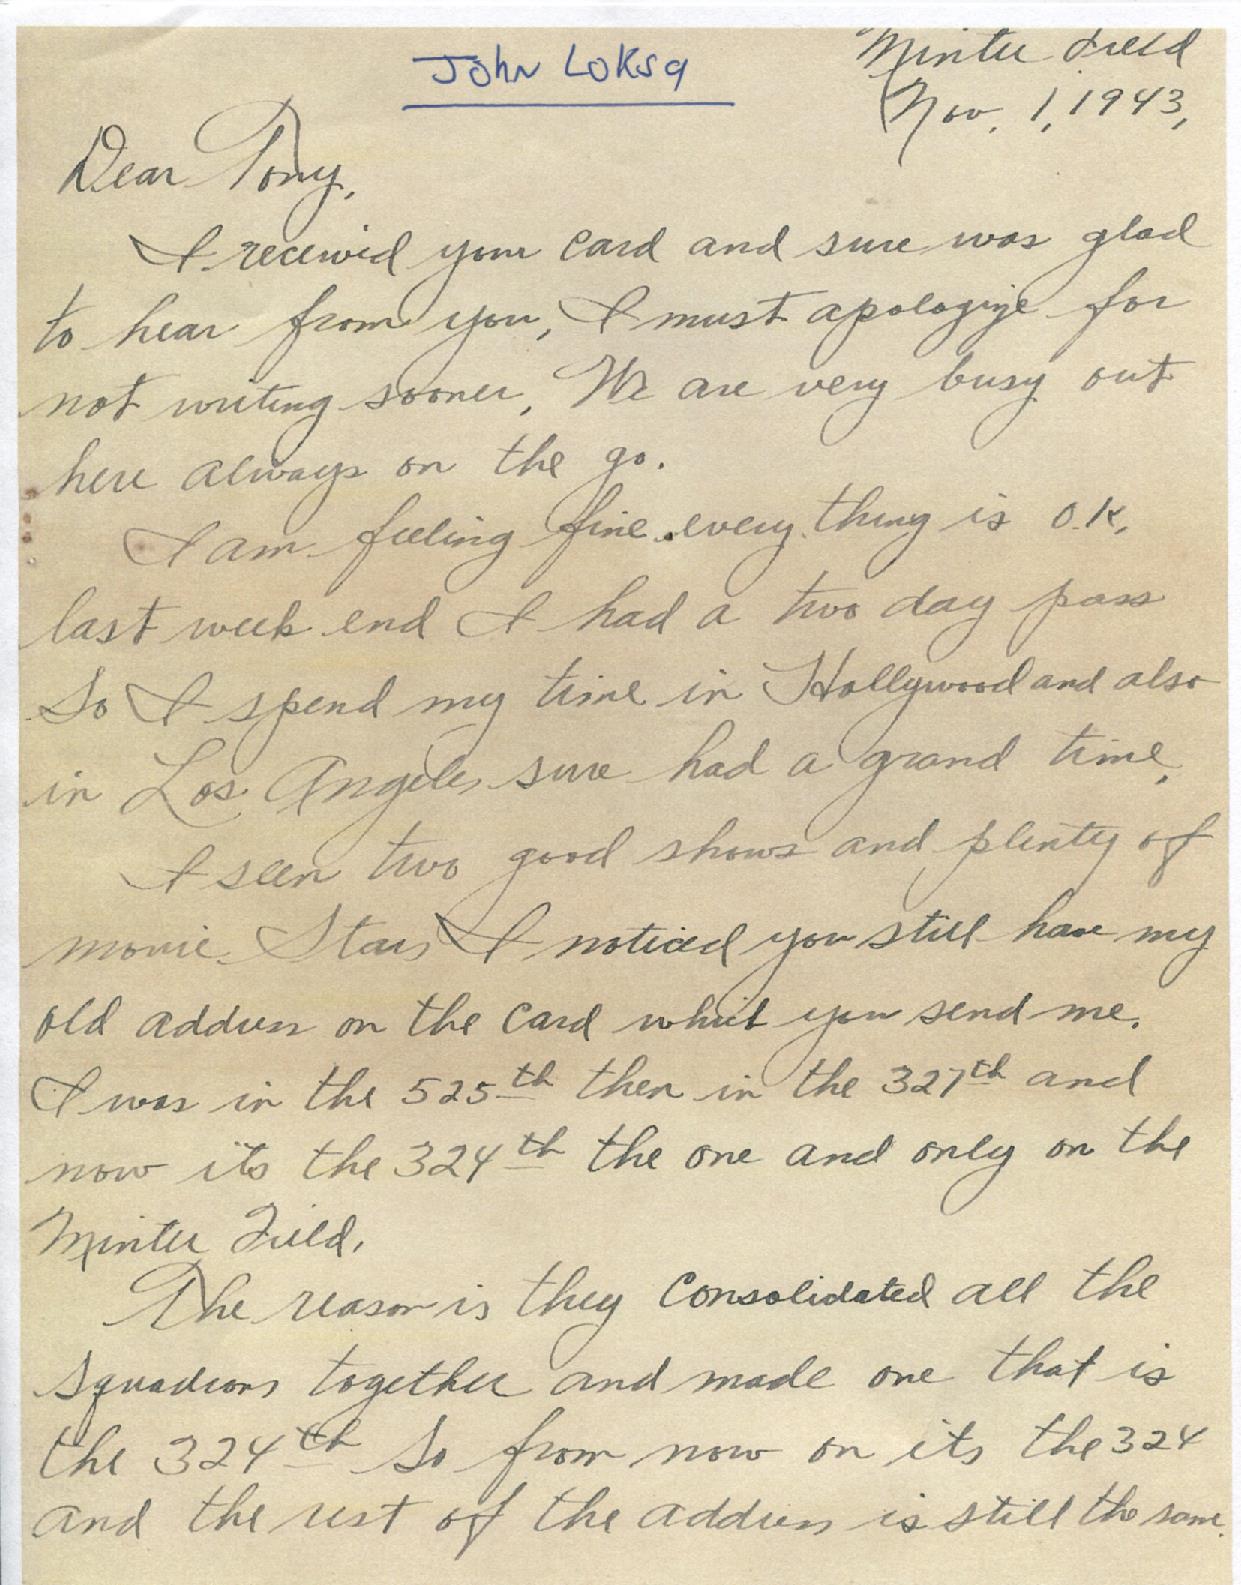 John Loksa
Minter Field
Nov. 1, 1943,
Dear Tony,
I received your card and sure was glad
to hear from you, I must apologize for
not writing sooner, We are very busy out
here always on the go.
I am feeling fine every thing is O.K,
last week end I had a two day pass
So I spend my time in Hollywood and also
in Los Angeles sure had a grand time,
I seen two good shows and plenty of
movie Stars, I noticed you still have my
old address on the card you send me.
I was in the 525th then in the 327th and
now its the 324th the one and only on the
Minter Field,
The reason is they Consolidated all the
Squadrons together and made one that is
the 324th So from now on its the 324
and the rest of the address is still the same.